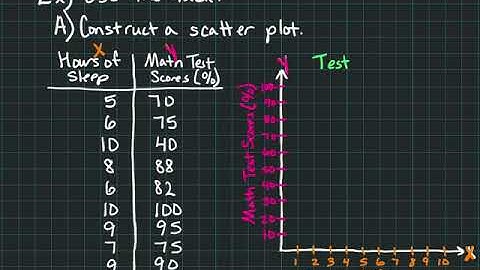 A) Construct a scatter plot.
x y
Hours of Sleep Math Test Scores (%)
5 70
6 75
10 40
8 88
6 82
10 100
9 95
7 75
9 90
y Test
Math Test Scores (%)
100
90
80
70
60
50
40
30
20
10
1 2 3 4 5 6 7 8 9 10 x